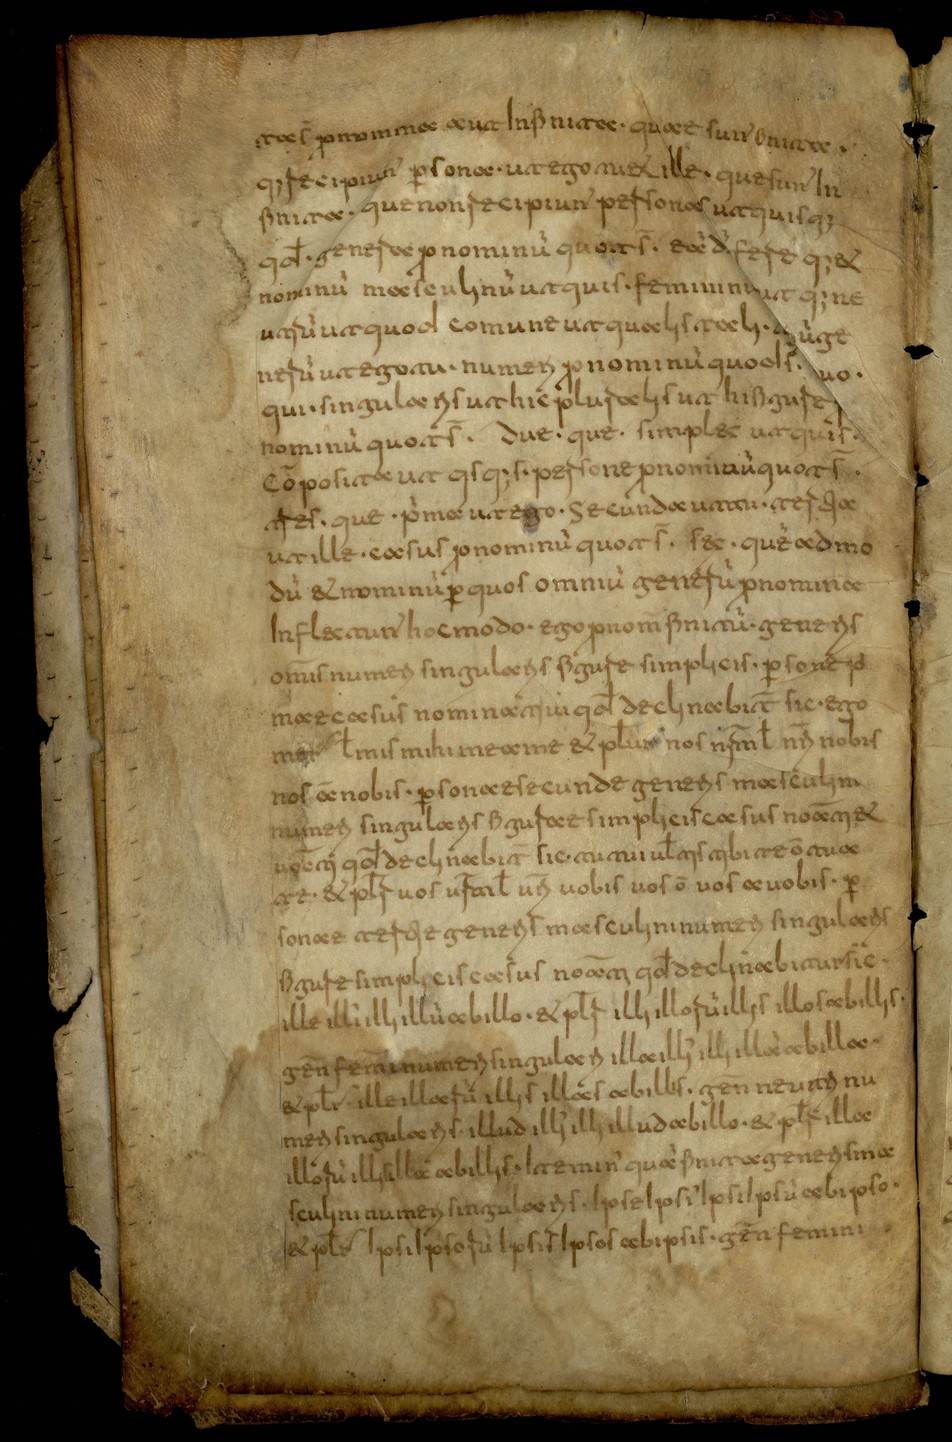 tas pnomina aut Infinita. que sunt finita.
q; recipiunt psonas. ut ego tu & ille. que sunt In
finita. que non recipiunt personas ut quis q;
qd. genera pnominū quot s̄. eadē fere q; &
nominū masculinū ut quis. femininū ut q; ne
utrū ut quod comune ut qualis talis.
nerū ut ego tu. numeri pnominū quod s̄. duo.
qui. singularis ut hic pluralis ut hi figure
nominū quot s̄. due. que. simplex ut quis.
cōposita ut qsq;s. persone pnominū quot s̄.
tres. que. prima ut ego. Secunda ut tu. tertia
ut ille. casus pnominū quot s̄. sex. quē admo
dū & nominū p quos omniū generū pnomina
Inflectunt hoc modo. ego pnom̄ finitū. generis
omīs numeri singularis figure simplicis. psone p
mae casus nominatiui qd declinabit̄ sic. ego
mei l mis mihi me a me & plur nos nr̄m l nr̄i nobis
nos a nobis. psonae secunde generis masculini
numeri singularis figurae simplicis casus noāti &
uoc̄ti qd declinabit̄ sic. tu tui ul tis tibi te ō tu a
te. & plr uos ur̄m l ur̄i uobis uos ō uos a uobis. p
sonae tertie generis masculini numeri singularis
figure simplicis casus noāti qd declinabitur sic.
ille illi illi illū ab illo. & plr illi illorū illis illos ab illis.
gen̄ femini numeri singulari illa illi illi illā ab illa.
& plr. ille illarū illis illas ab illis. gen̄ neutri nu
meri singularis illud illi illi illud ab illo. & plr illa
illorū illis illa ab illis. Item min quā finita generis ma
sculini numeri singularis. Ipse Ipsi Ipsi Ipsū ab ipso.
& plr Ipsi Ipsorū Ipsis Ipsos ab ipsis. gen̄ femini